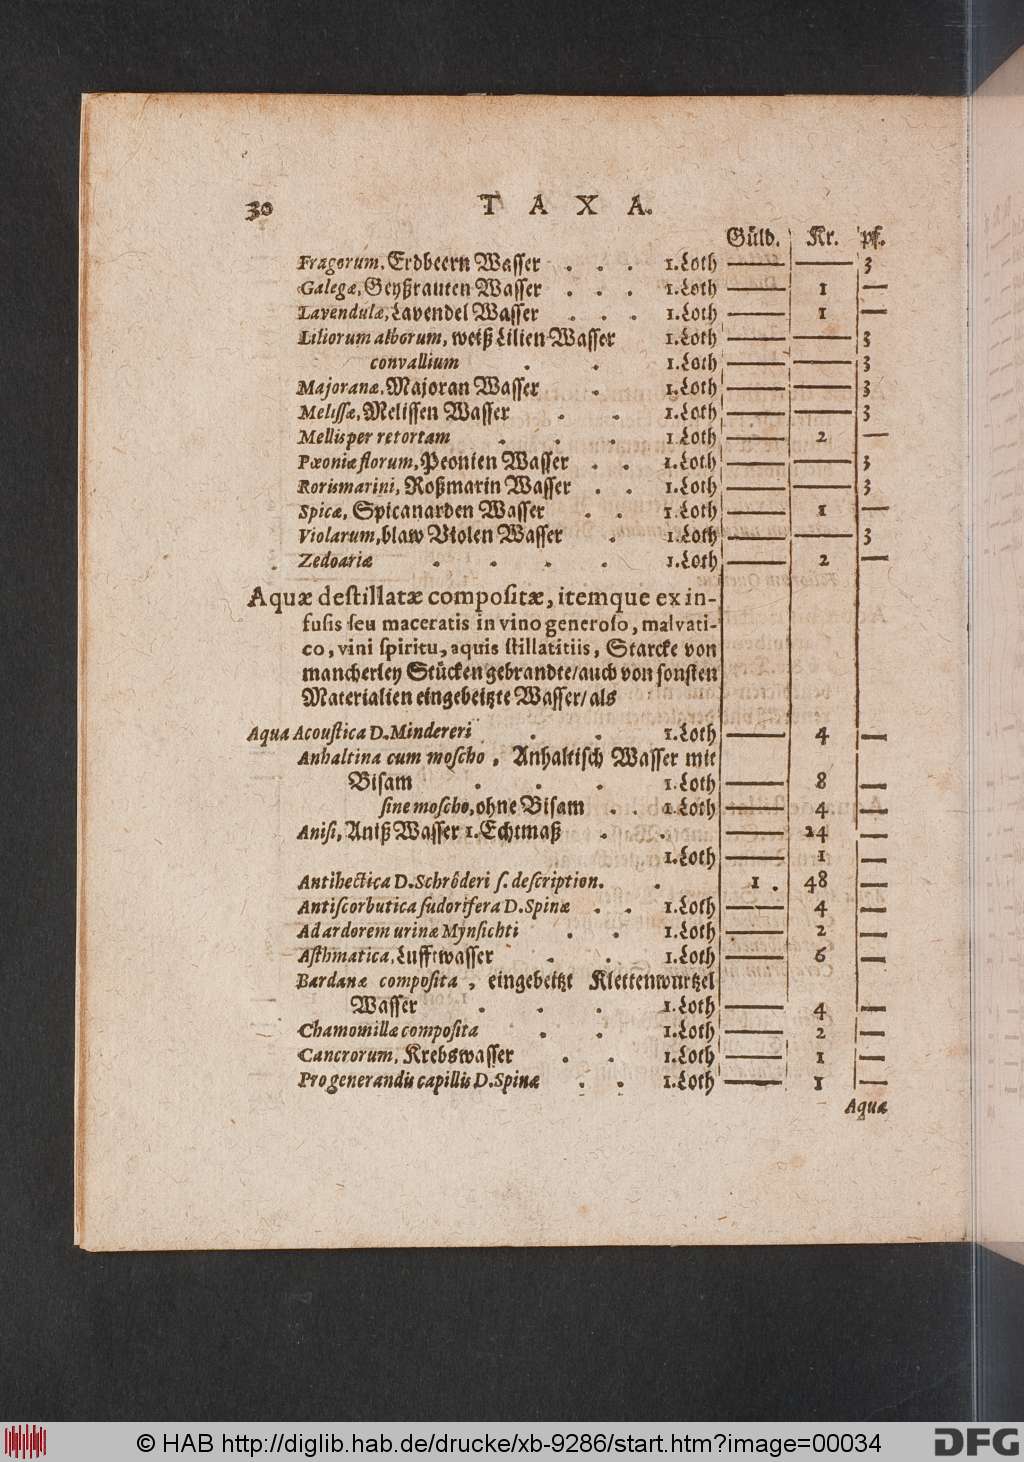 30 TAXA.
Güld. Kr. pf.
Fragorum, Erdbeern Wasser . . . 1. Loth — — 3
Galegæ, Geyßrauten Wasser . . . 1. Loth — 1 —
Lavendulæ, Lavendel Wasser . . . 1. Loth — 1 —
Liliorum alborum, weiß Lilien-Wasser 1. Loth — — 3
convallium . . 1. Loth — — 3
Majoranæ, Majoran Wasser . 1. Loth — — 3
Melissæ, Melissen Wasser . . 1. Loth — — 3
Mellis per retortam . . . 1. Loth — 2 —
Pœoniæ florum, Peonien Wasser . . 1. Loth — — 3
Rorismarini, Roßmarin Wasser . . 1. Loth — — 3
Spicæ, Spicanarden Wasser . . 1. Loth — 1 —
Violarum, blaw Violen Wasser . 1. Loth — — 3
Zedoariæ . . . . 1. Loth — 2 —
Aquæ destillatæ compositæ, itemque ex in-
fusis seu maceratis in vino generoso, malvati-
co, vini spiritu, aquis stillatitiis, Starcke von
mancherley Stücken gebrandte/ auch von sonsten
Materialien eingebeitzte Wasser/ als
Aqua Acoustica D. Mindereri . . 1. Loth — 4 —
Anhaltina cum moscho, Anhaltisch Wasser mit
Bisam . . . 1. Loth — 8 —
sine moscho, ohne Bisam . . 1. Loth — 4 —
Anisi, Aniß Wasser 1. Echtmaß . . — 24 —
1. Loth — 1 —
Antihectica D. Schrôderi s. description. . 1 . 48 —
Antiscorbutica sudorifera D. Spinæ . . 1. Loth — 4 —
Ad ardorem urinæ Mynsichti . . 1. Loth — 2 —
Asthmatica, Lufftwasser . . 1. Loth — 6 —
Bardanæ composita, eingebeitzt Klettenwurtzel
Wasser . . . 1. Loth — 4 —
Chamomillæ composita . . 1. Loth — 2 —
Cancrorum, Krebswasser . . 1. Loth — 1 —
Pro generandis capillis D. Spinæ . . 1. Loth — 1 —
Aquæ
© HAB http://diglib.hab.de/drucke/xb-9286/start.htm?image=00034
DFG